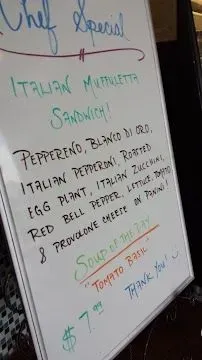 Chef Special
Italian Muffuletta
Sandwich!
Peppereno, Blanco di oro,
Italian Pepperoni, Roasted
egg plant, Italian Zucchini,
Red bell pepper, lettuce, tomato
& provolone cheese on Panini!
Soup of the Day
"Tomato Basil"
$7.99
Thank you!